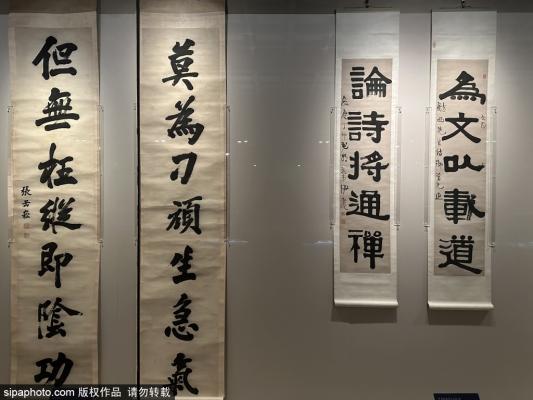 為文以載道
論詩將通禪
莫為刁頑生急氣
但無枉縱即陰功
sipaphoto.com 版权作品 请勿转载